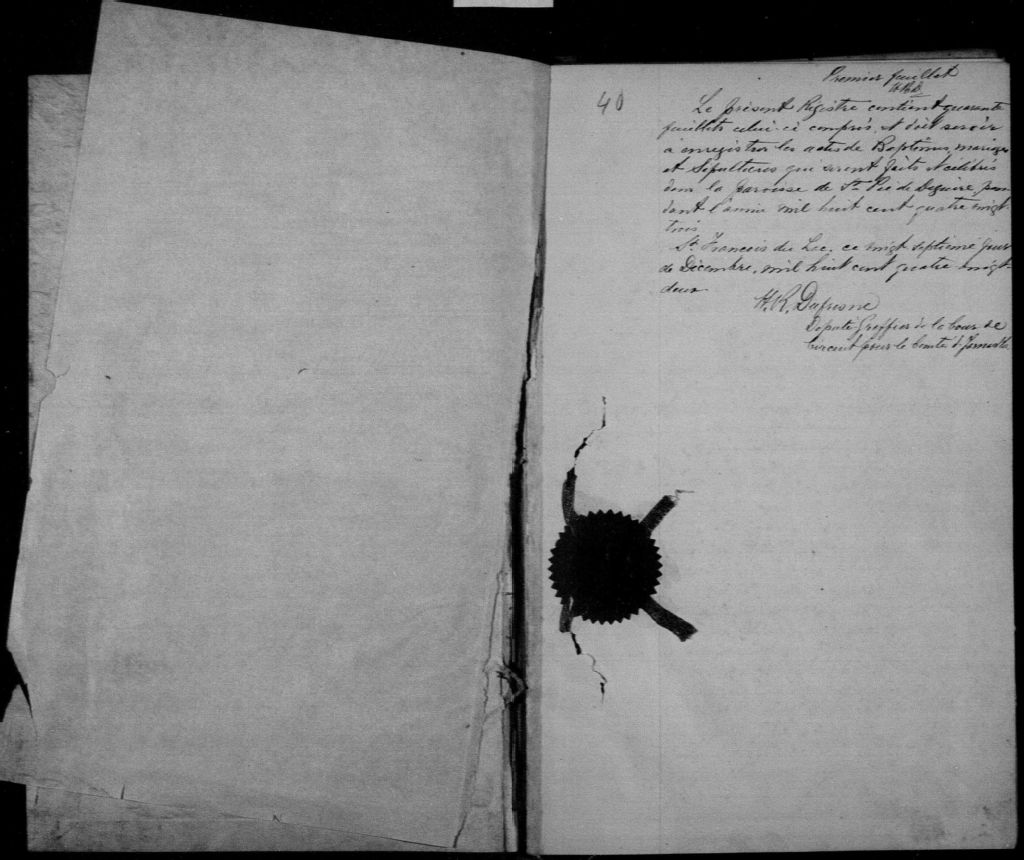 Premier feuillet
H.R.D.
40
Le présent Registre contient quarante
feuillets celui-ci compris, et doit servir
à enregistrer les actes de Baptêmes, mariages
et Sépultures qui seront faits et célébrés
dans la paroisse de St. Pie de Deguire pen-
dant l'année mil huit cent quatre vingt-
trois
St. François du Lac, ce vingt septième jour
de Décembre, mil huit cent quatre vingt-
deux.
H. R. Dufresne
Député Greffier de la Cour de
Circuit pour le Comté d'Yamaska